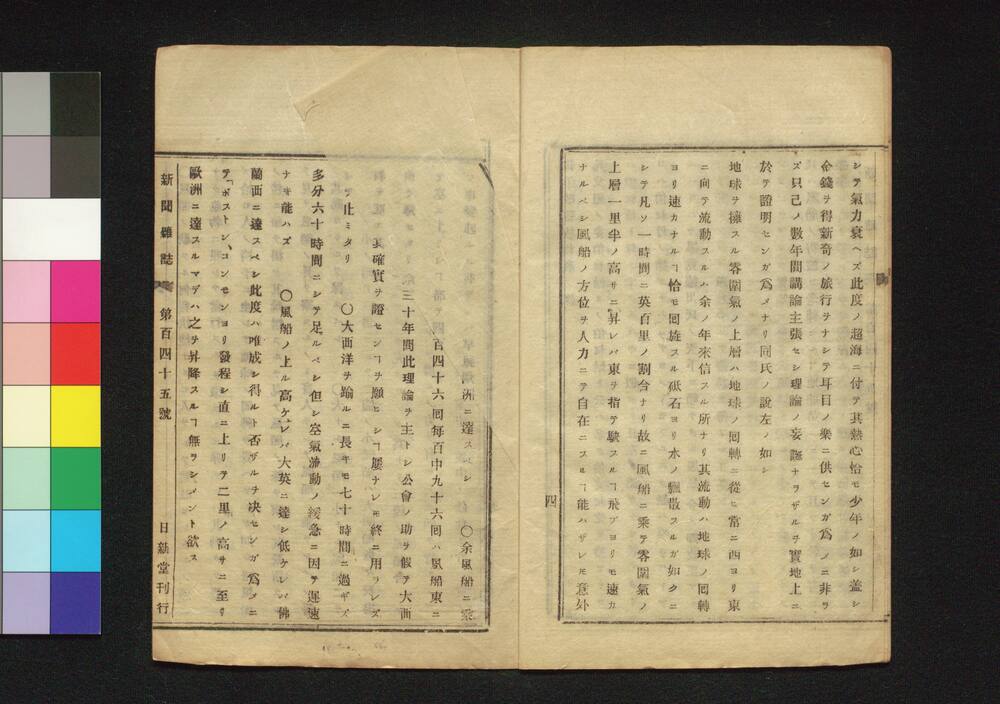 シテ氣力衰ヘズ此度ノ超海ニ付テ其熱心恰モ少年ノ如シ蓋シ
金錢ヲ得新奇ノ旅行ヲナシテ耳目ノ樂ニ供センガ爲ノニ非ラ
ズ只己ノ數年間講論主張セシ理論ノ妄誕ナラザルヲ實地上ニ
於テ證明センガ爲メナリ同氏ノ說左ノ如シ
地球ヲ擁スル零圍氣ノ上層ハ地球ノ回轉ニ從ヒ常ニ西ヨリ東
ニ向テ流動スルハ余ノ年來信スル所ナリ其流動ハ地球ノ回轉
ヨリ速カナルヿ恰モ回旋スル砥石ヨリ水ノ飄散スルガ如クニ
シテ凡ソ一時間ニ英百里ノ割合ナリ故ニ風船ニ乘テ零圍氣ノ
上層一里半ノ高サニ昇レバ東ヲ指テ驶スルヿ飛ブヨリモ速カ
ナルベシ風船ノ方位ヲ人力ニテ自在ニスルヿ能ハザレモ意外
四
洲ニ達スベシ 〇余風船ニ乘
四百四十六回每百中九十六回ハ風船東ニ
三十年間此理論ヲ主トシ公會ノ助ヲ假テ大西
其確實ヲ證センヿヲ願ヒシヿ屢ナレモ終ニ用ラレズ
テ止ミタリ 〇大西洋ヲ踰ルニ長キモ七十時間ニ過ギズ
多分六十時間ニシテ足ルベシ但シ空氣流動ノ緩急ニ因テ遲速
ナキ能ハズ 〇風船ノ上ル高ケレバ大英ニ達シ低ケレバ佛
蘭西ニ達スベシ此度ハ唯成シ得ルト否ザルヲ決センガ爲メニ
テ「ボストン、コンモンヨリ發程シ直ニ上リテ二里ノ高サニ至リ
歐洲ニ達スルマデハ之ヲ昇降スルヿ無ラシメント欲ス
新聞雜誌 第百四十五號 日新堂刊行